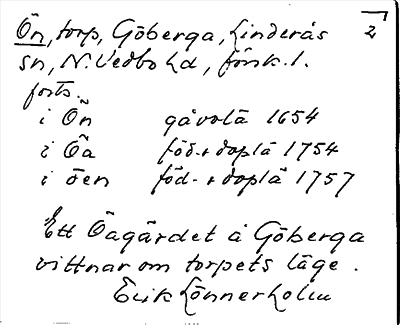 Ön, torp, Göberga, Linderås 2
sn, N. Vedbo hd, försk. 1.
forts.
i Ön gåvolä 1654
i Öa föd- o doplä 1754
i öen föd- o doplä 1757
Ett Öagärdet å Göberga
vittnar om torpets läge.
Erik Lönnerholm